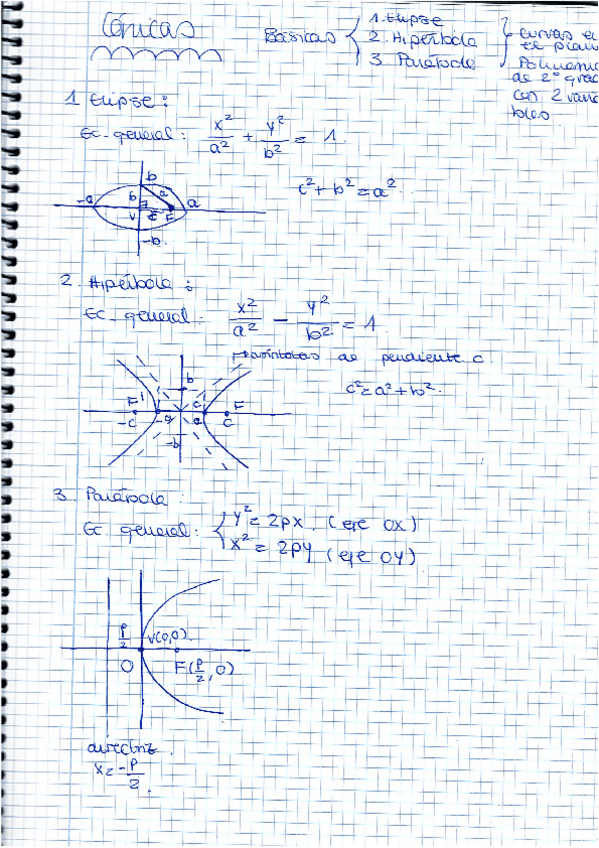 Cónicas
Básicas
1. Elipse
2. Hipérbola
3. Parábola
curvas e
el plan
Polinomi
de 2º gra
con 2 varia
bles
1 Elipse:
Ec. general: x²/a² + y²/b² = 1.
b
b a
-a V c F a
-b
c² + b² = a².
2. Hipérbola:
Ec. general: x²/a² - y²/b² = 1
asíntotas de pendiente c.
c² = a² + b².
b
F' c F
-c -a a c
-b
3. Parábola:
Ec. general: y² = 2px. (eje OX)
x² = 2py (eje OY)
p/2 V(0,0)
O F(p/2, 0)
directriz.
x = -p/2.